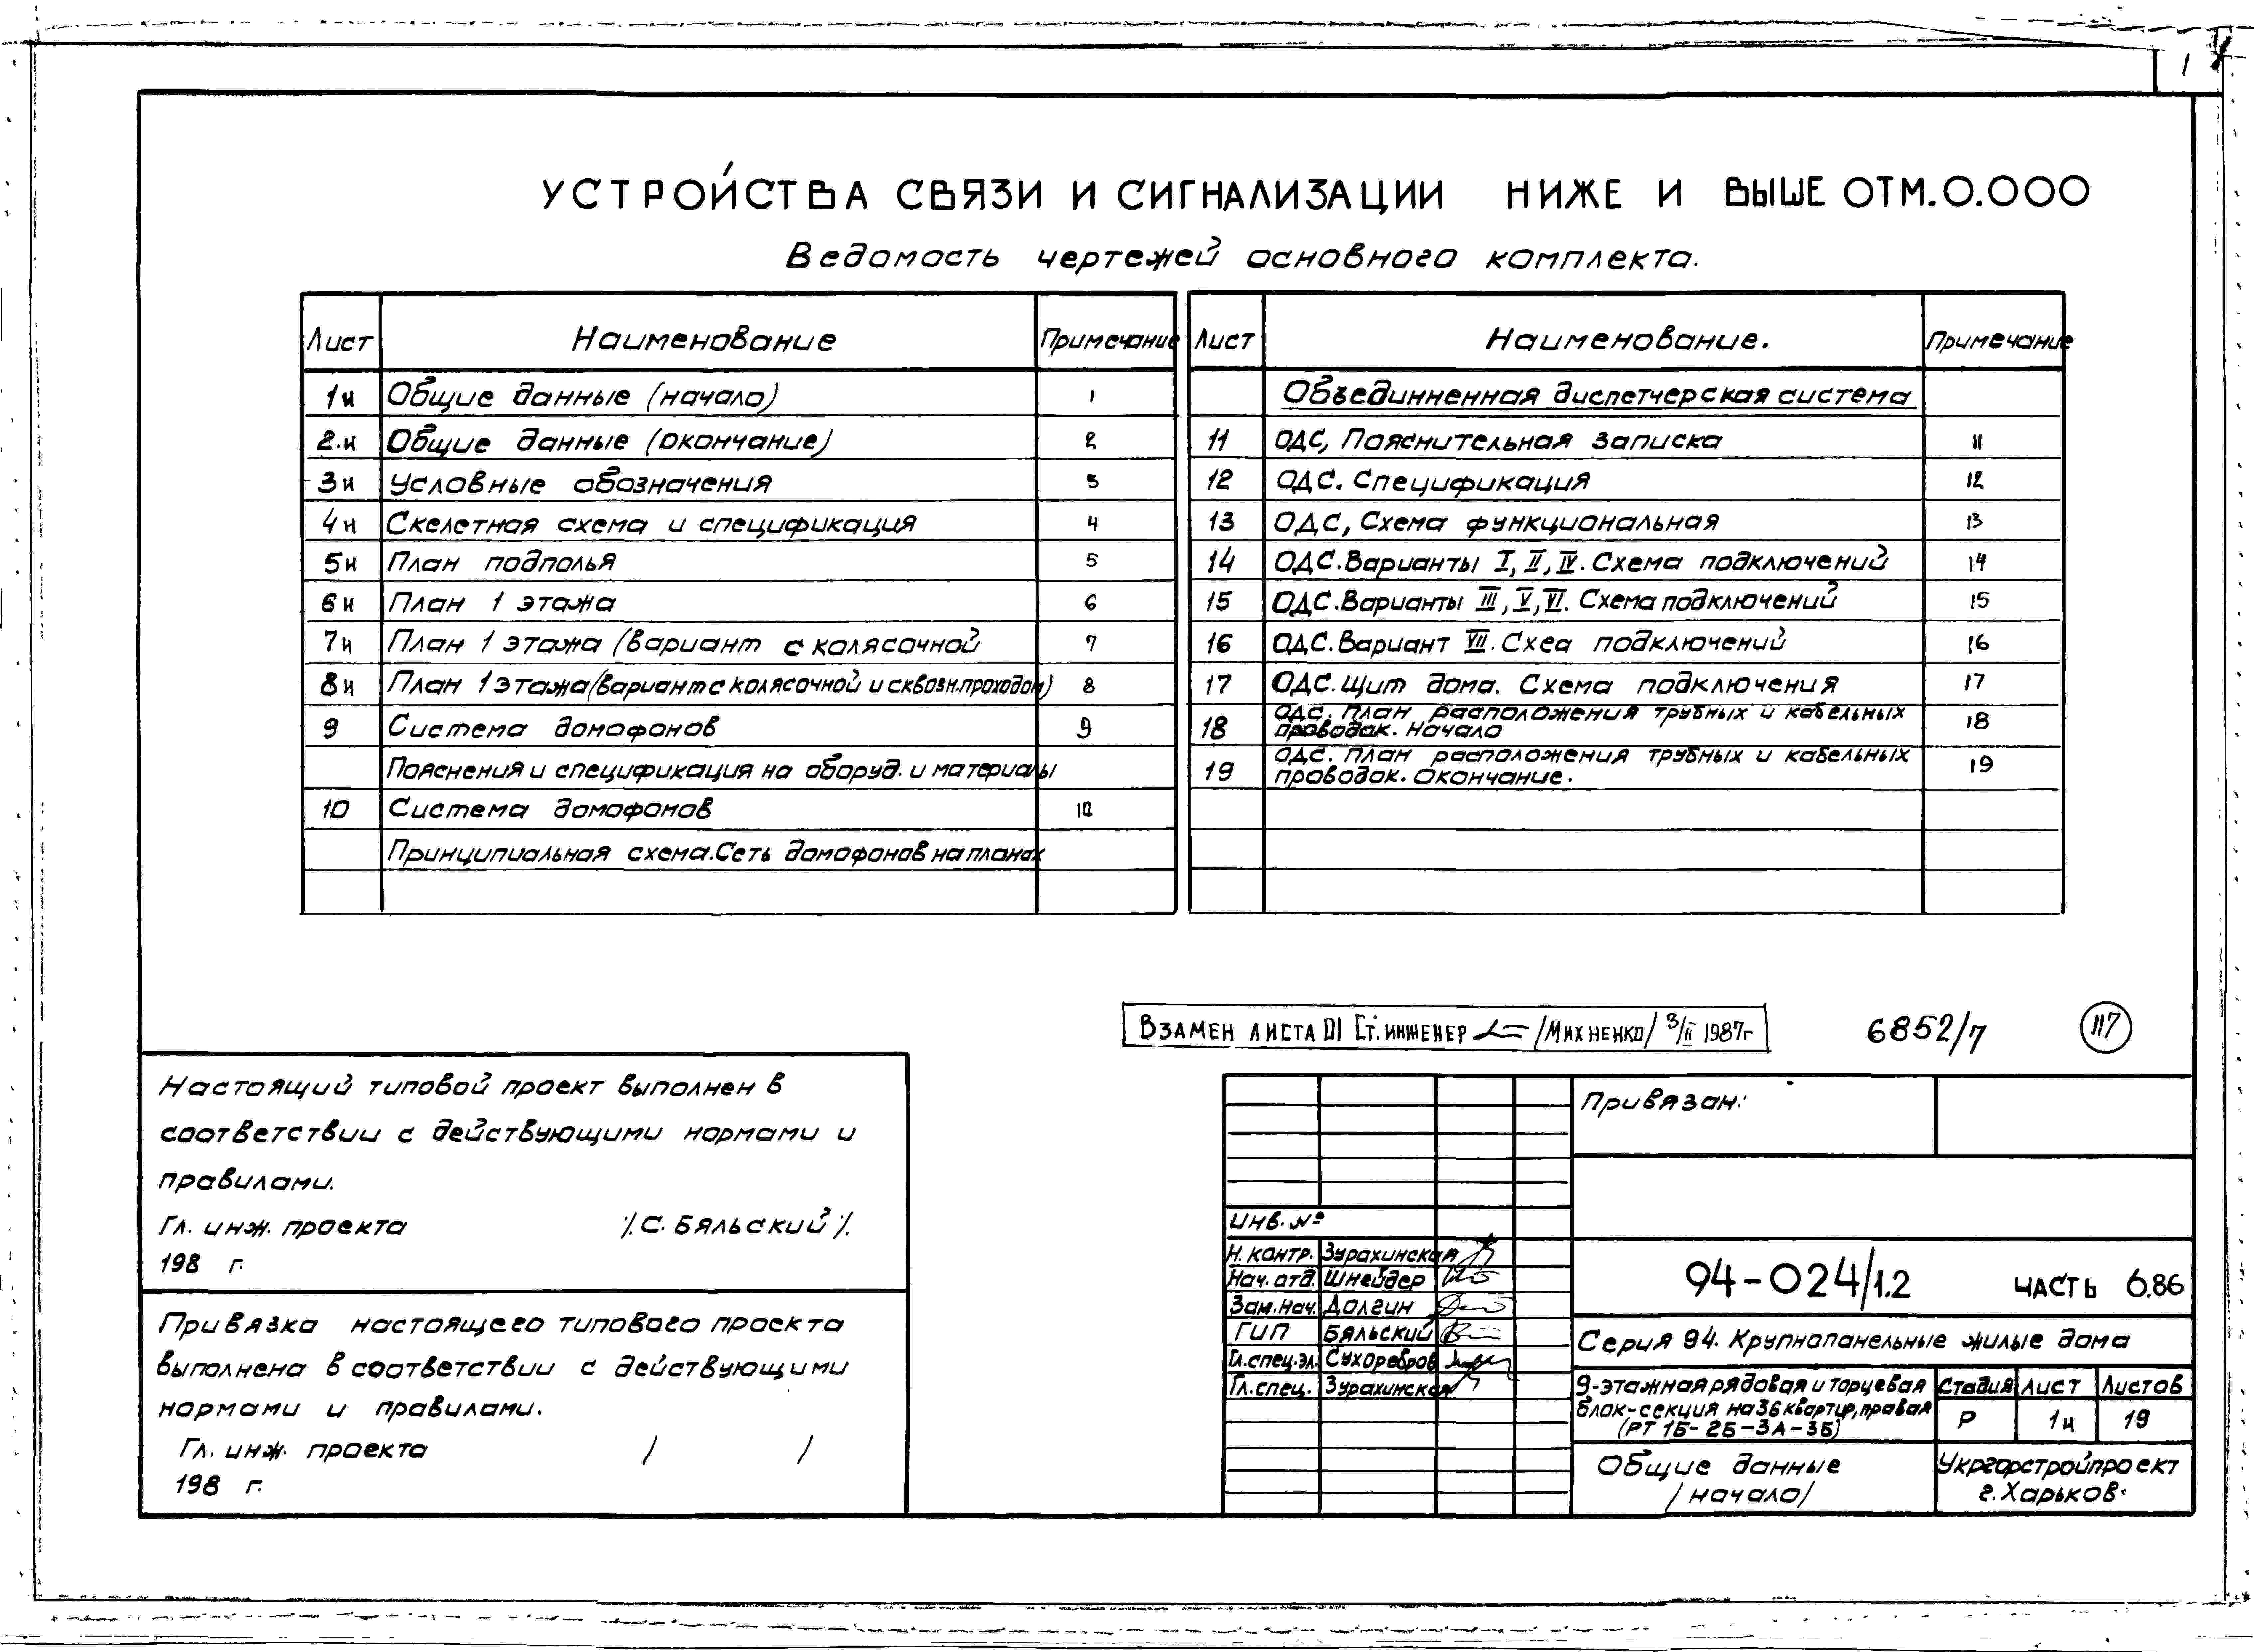 1
УСТРОЙСТВА СВЯЗИ И СИГНАЛИЗАЦИИ НИЖЕ И ВЫШЕ ОТМ.0.000
Ведомость чертежей основного комплекта.
Лист Наименование Примечание
1и Общие данные (начало) 1
2.и Общие данные (окончание) 2
3и Условные обозначения 3
4и Скелетная схема и спецификация 4
5и План подполья 5
6и План 1 этажа 6
7и План 1 этажа (вариант с колясочной 7
8и План 1 этажа (вариант с колясочной и сквозн.проходом) 8
9 Система домофонов 9
Пояснения и спецификация на оборуд. и материалы
10 Система домофонов 10
Принципиальная схема. Сеть домофонов на планах
Лист Наименование. Примечание
Объединненная диспетчерская система
11 ОДС, Пояснительная записка 11
12 ОДС. Спецификация 12
13 ОДС, Схема функциональная 13
14 ОДС. Варианты I, II, IV. Схема подключений 14
15 ОДС. Варианты III, V, VI. Схема подключений 15
16 ОДС. Вариант VII. Схеа подключений 16
17 ОДС. Щит дома. Схема подключения 17
18 ОДС. План расположения трубных и кабельных 18
проводок. Начало
19 ОДС. План расположения трубных и кабельных 19
проводок. Окончание.
Взамен листа 01 Ст. инженер /Михненко/ 3/II 1987г
6852/7 117
Настоящий типовой проект выполнен в
соответствии с действующими нормами и
правилами.
Гл. инж. проекта /.С. Бяльский /.
198 г.
Привязка настоящего типового проекта
выполнена в соответствии с действующими
нормами и правилами.
Гл. инж. проекта / /
198 г.
Привязан:
Инв. №
Н. контр. Зурахинская
Нач. отд. Шнейдер
Зам. нач. Долгин
ГИП Бяльский
Гл. спец. эл. Сухоребров
Гл. спец. Зурахинская
94-024/1.2 ЧАСТЬ 6.86
Серия 94. Крупнопанельные жилые дома
9-этажная рядовая и торцевая
блок-секция на 36 квартир, правая
(РТ 1Б-2Б-3А-3Б)
Стадия Лист Листов
Р 1и 19
Общие данные
/начало/
Укргорстройпроект
г. Харьков